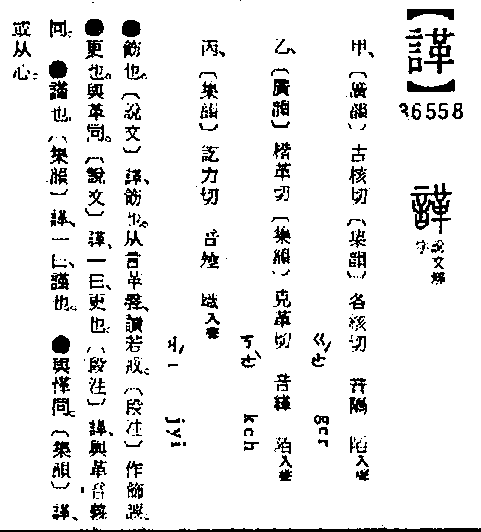 【諽】
36558
諽 說文解字
甲、〔廣韻〕古核切〔集韻〕各核切 音隔 陌入聲
ㄍㄜ ger
乙、〔廣韻〕楷革切〔集韻〕克革切 音緙 陌入聲
ㄎㄜ keh
丙、〔集韻〕訖力切 音殛 職入聲
ㄐㄧ jyi
●飭也。〔說文〕諽、飭也。从言革聲、讀若戒。〔段注〕作飾誤。
●更也。與革同。〔說文〕諽、一曰、更也。〔段注〕諽與革音義
同。 ●謹也。〔集韻〕諽、一曰、謹也。 ●與愅同。〔集韻〕諽、
或从心。